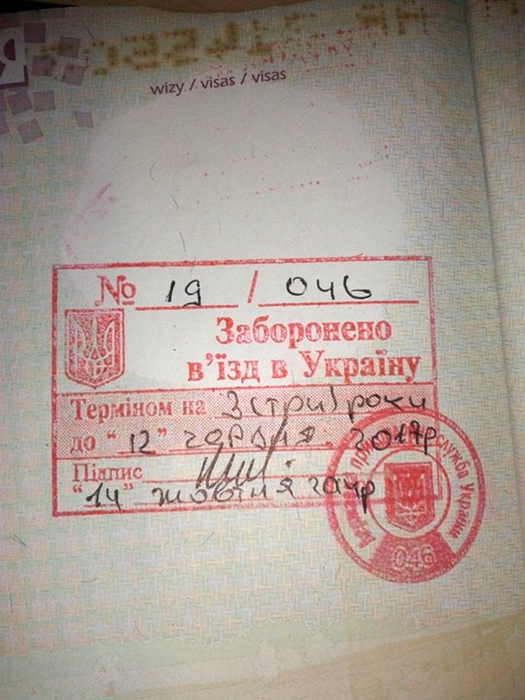 wizy / visas / visas
№ 19 / 046
Заборонено
в'їзд в Україну
Терміном на 3 (три) роки
до "12" 2017р
Підпис
"14" жовтня 2014р
служба України
046